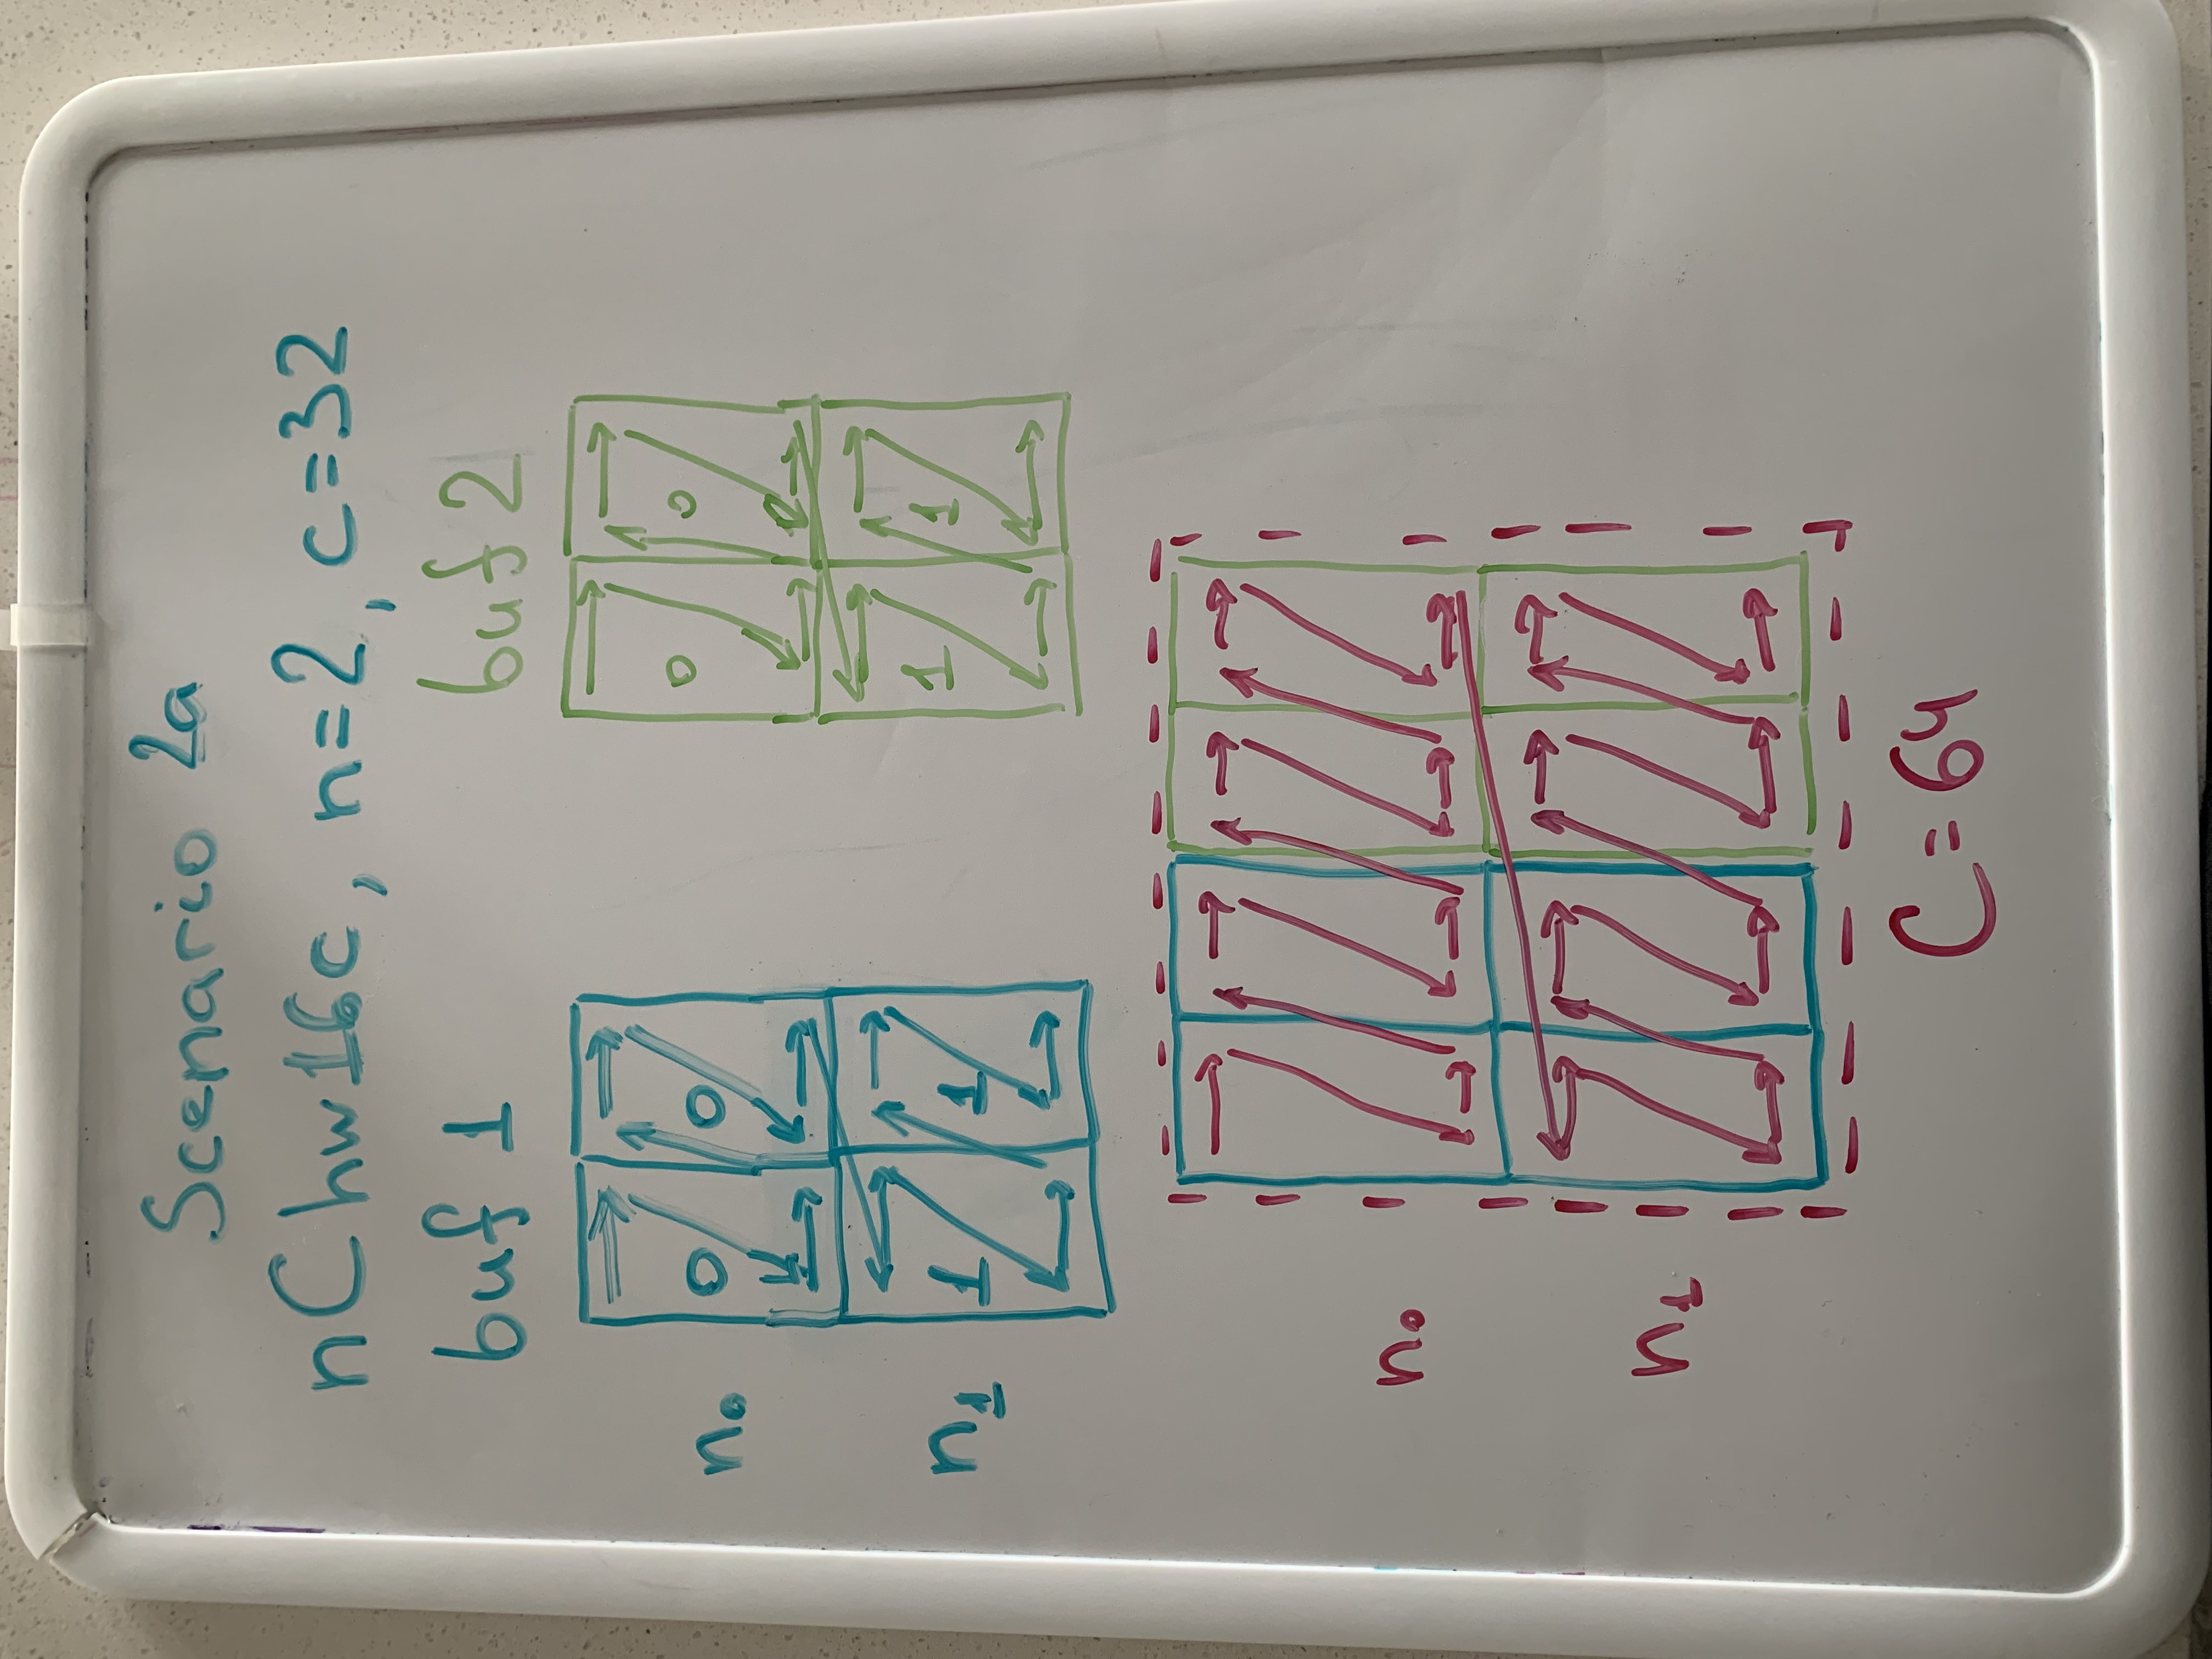 Scenario 2a
nChw16c, n=2, c=32
buf 1
buf 2
n₀
0 0
0 0
n₁
1 1
1 1
n₀
n₁
C=64